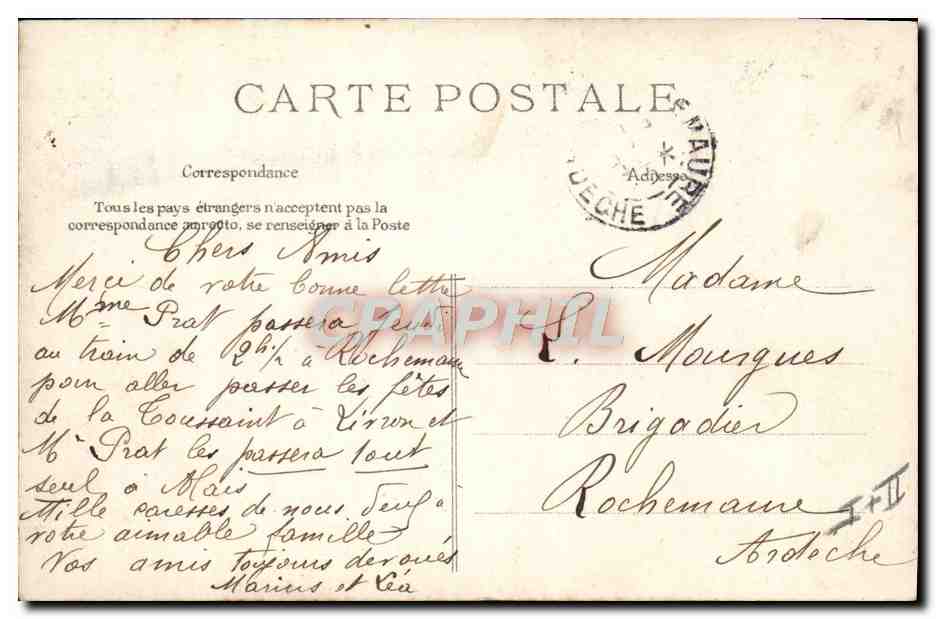 CARTE POSTALE
Correspondance
Adresse
Tous les pays étrangers n'acceptent pas la
correspondance au recto, se renseigner à la Poste
MAURE
DECHE
CPAPHIL
Chers Amis
Merci de votre bonne lettre
Mme Prat passera Jeudi
au train de 2h 1/2 à Rochemaure
pour aller passer les fêtes
de la Toussaint à Livron et
Mr Prat les passera tout
seul à Alais
Mille caresses de nous deux à
votre aimable famille
Vos amis toujours dévoués
Marius et Léa
Madame
L. Mourgues
Brigadier
Rochemaure
Ardèche
I+II